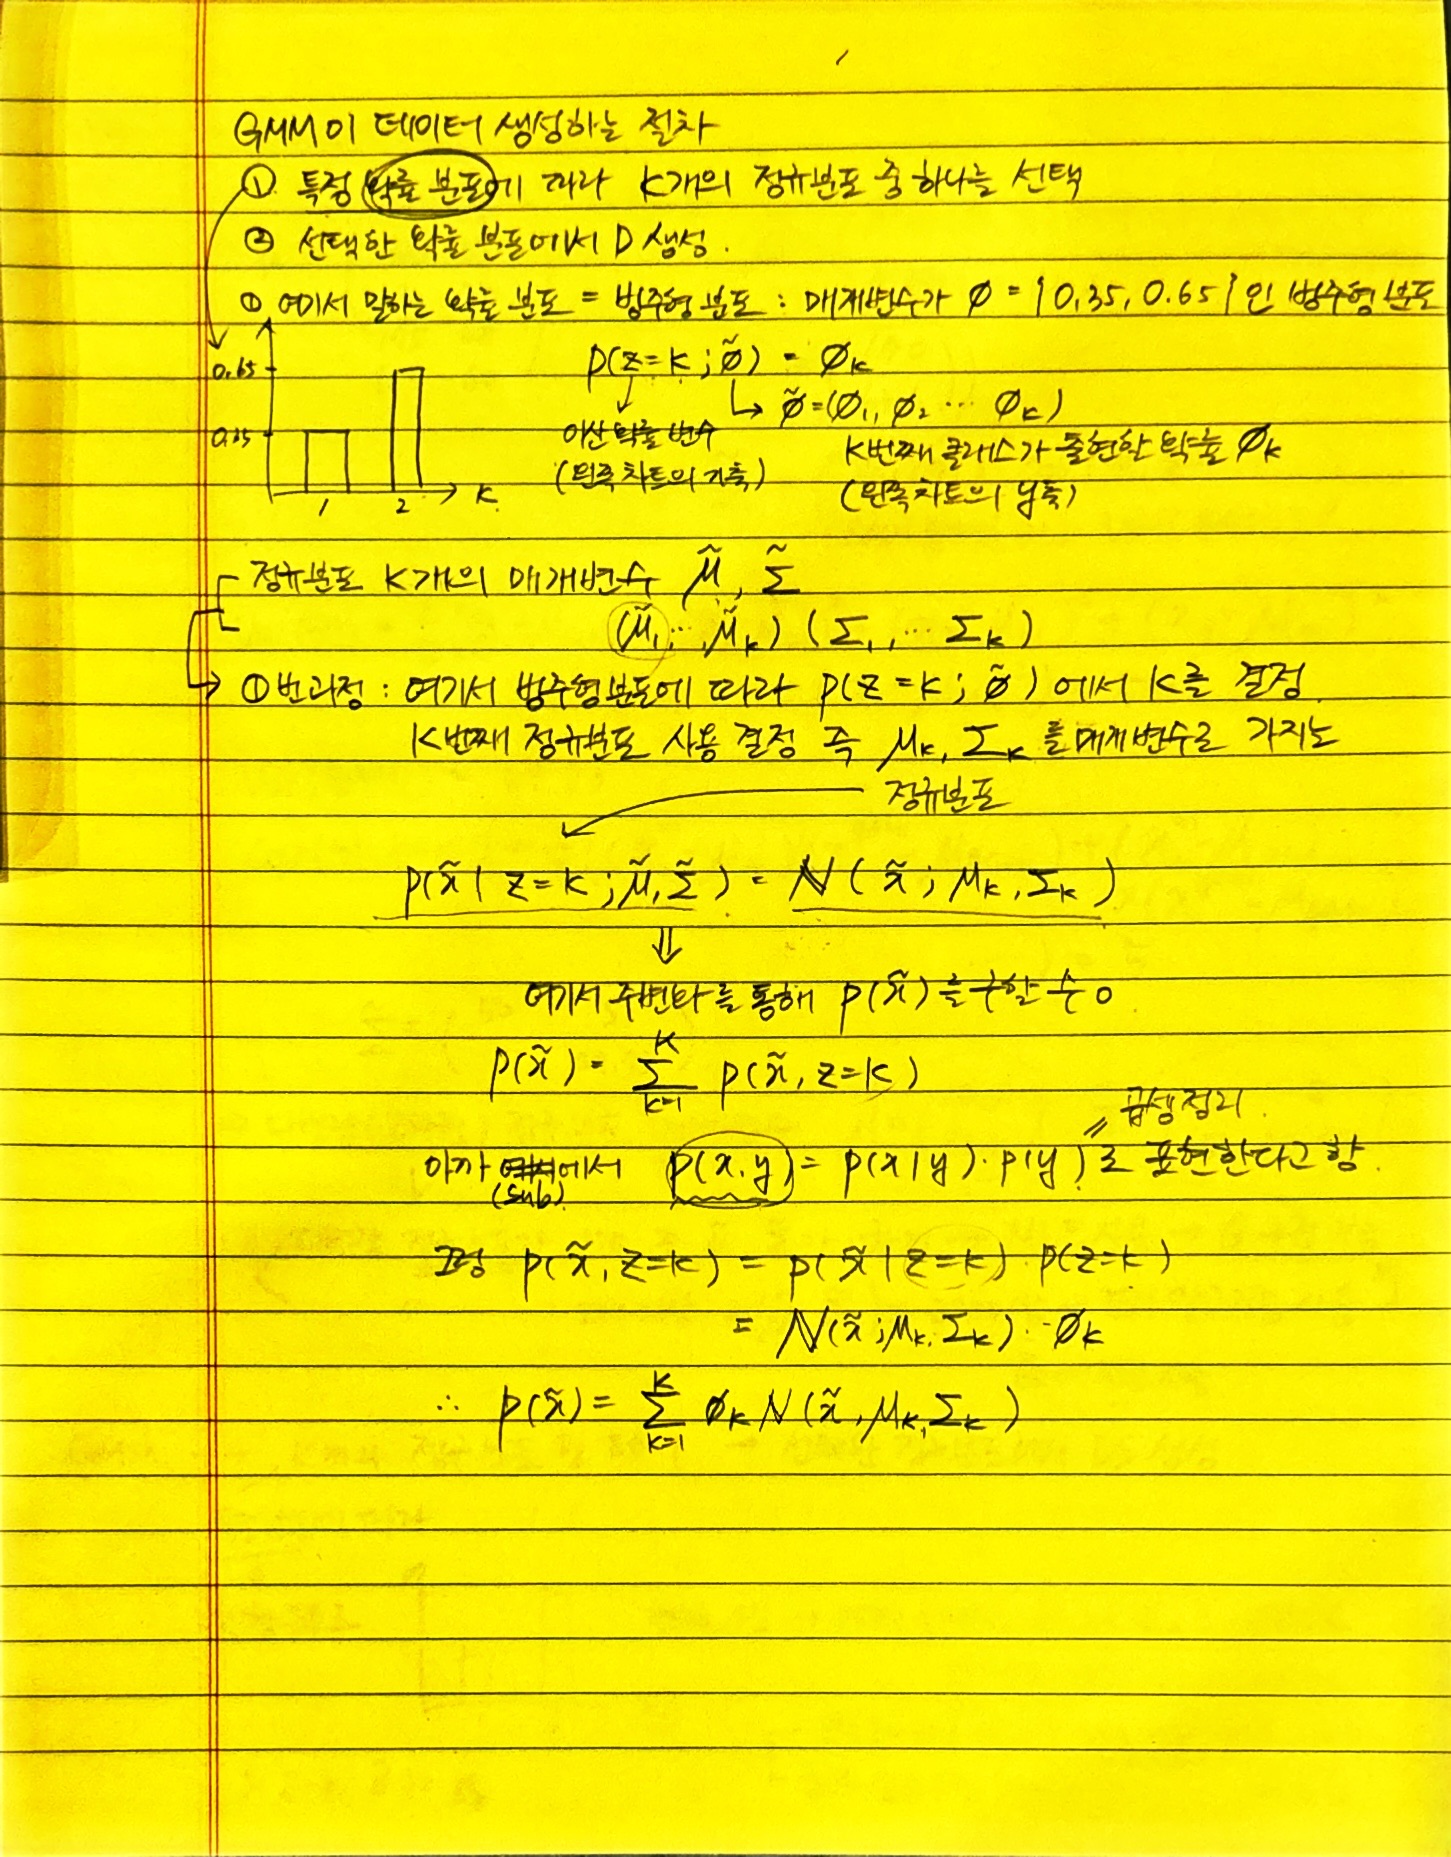 GMM이 데이터 생성하는 절차
① 특정 확률 분포에 따라 K개의 정규분포 중 하나를 선택
② 선택한 확률 분포에서 D 생성.
① 여기서 말하는 확률 분포 = 범주형 분포 : 매개변수가 ø = {0.35, 0.65}인 범주형 분포
0.65
0.35
1 2 K
p(z=k ; õ) = øk
↳ õ=(ø1, ø2 ... øk)
이산 확률 변수
(왼쪽 차트의 가축)
K번째 클래스가 출현할 확률 øk
(왼쪽 차트의 y축)
정규분포 K개의 매개변수 μ̃, Σ̃
(μ̃1, ..., μ̃k) (Σ1, ... Σk)
①번과정 : 여기서 범주형분포에 따라 p(z=k ; õ) 에서 K를 결정
K번째 정규분포 사용 결정 즉 μk, Σk 를 매개변수로 가지는
정규분포
p(x̃ | z=k ; μ̃, Σ̃) = N(x̃ ; μk, Σk)
⇓
여기서 주변화를 통해 p(x̃)를 구할 수 o
p(x̃) = Σ_{k=1}^{K} p(x̃, z=k)
곱셈정리
아까 에서 p(x,y) = p(x|y)·p(y) 로 표현한다고 함.
(sub)
그럼 p(x̃, z=k) = p(x̃ | z=k)·p(z=k)
= N(x̃ ; μk, Σk)·øk
∴ p(x̃) = Σ_{k=1}^{K} øk N(x̃, μk, Σk)